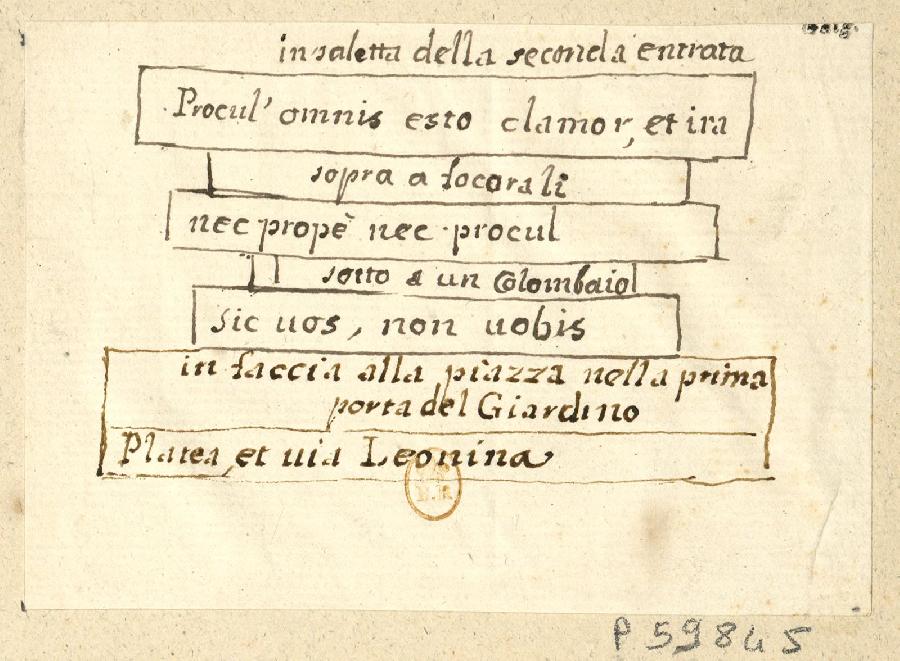 in saletta della seconda entrata
Procul' omnis esto clamor, et ira
sopra a focorali
nec propè nec procul
sotto a un Colombaio
sic uos, non uobis
in faccia alla piazza nella prima
porta del Giardino
Platea, et uia Leonina
P 59845